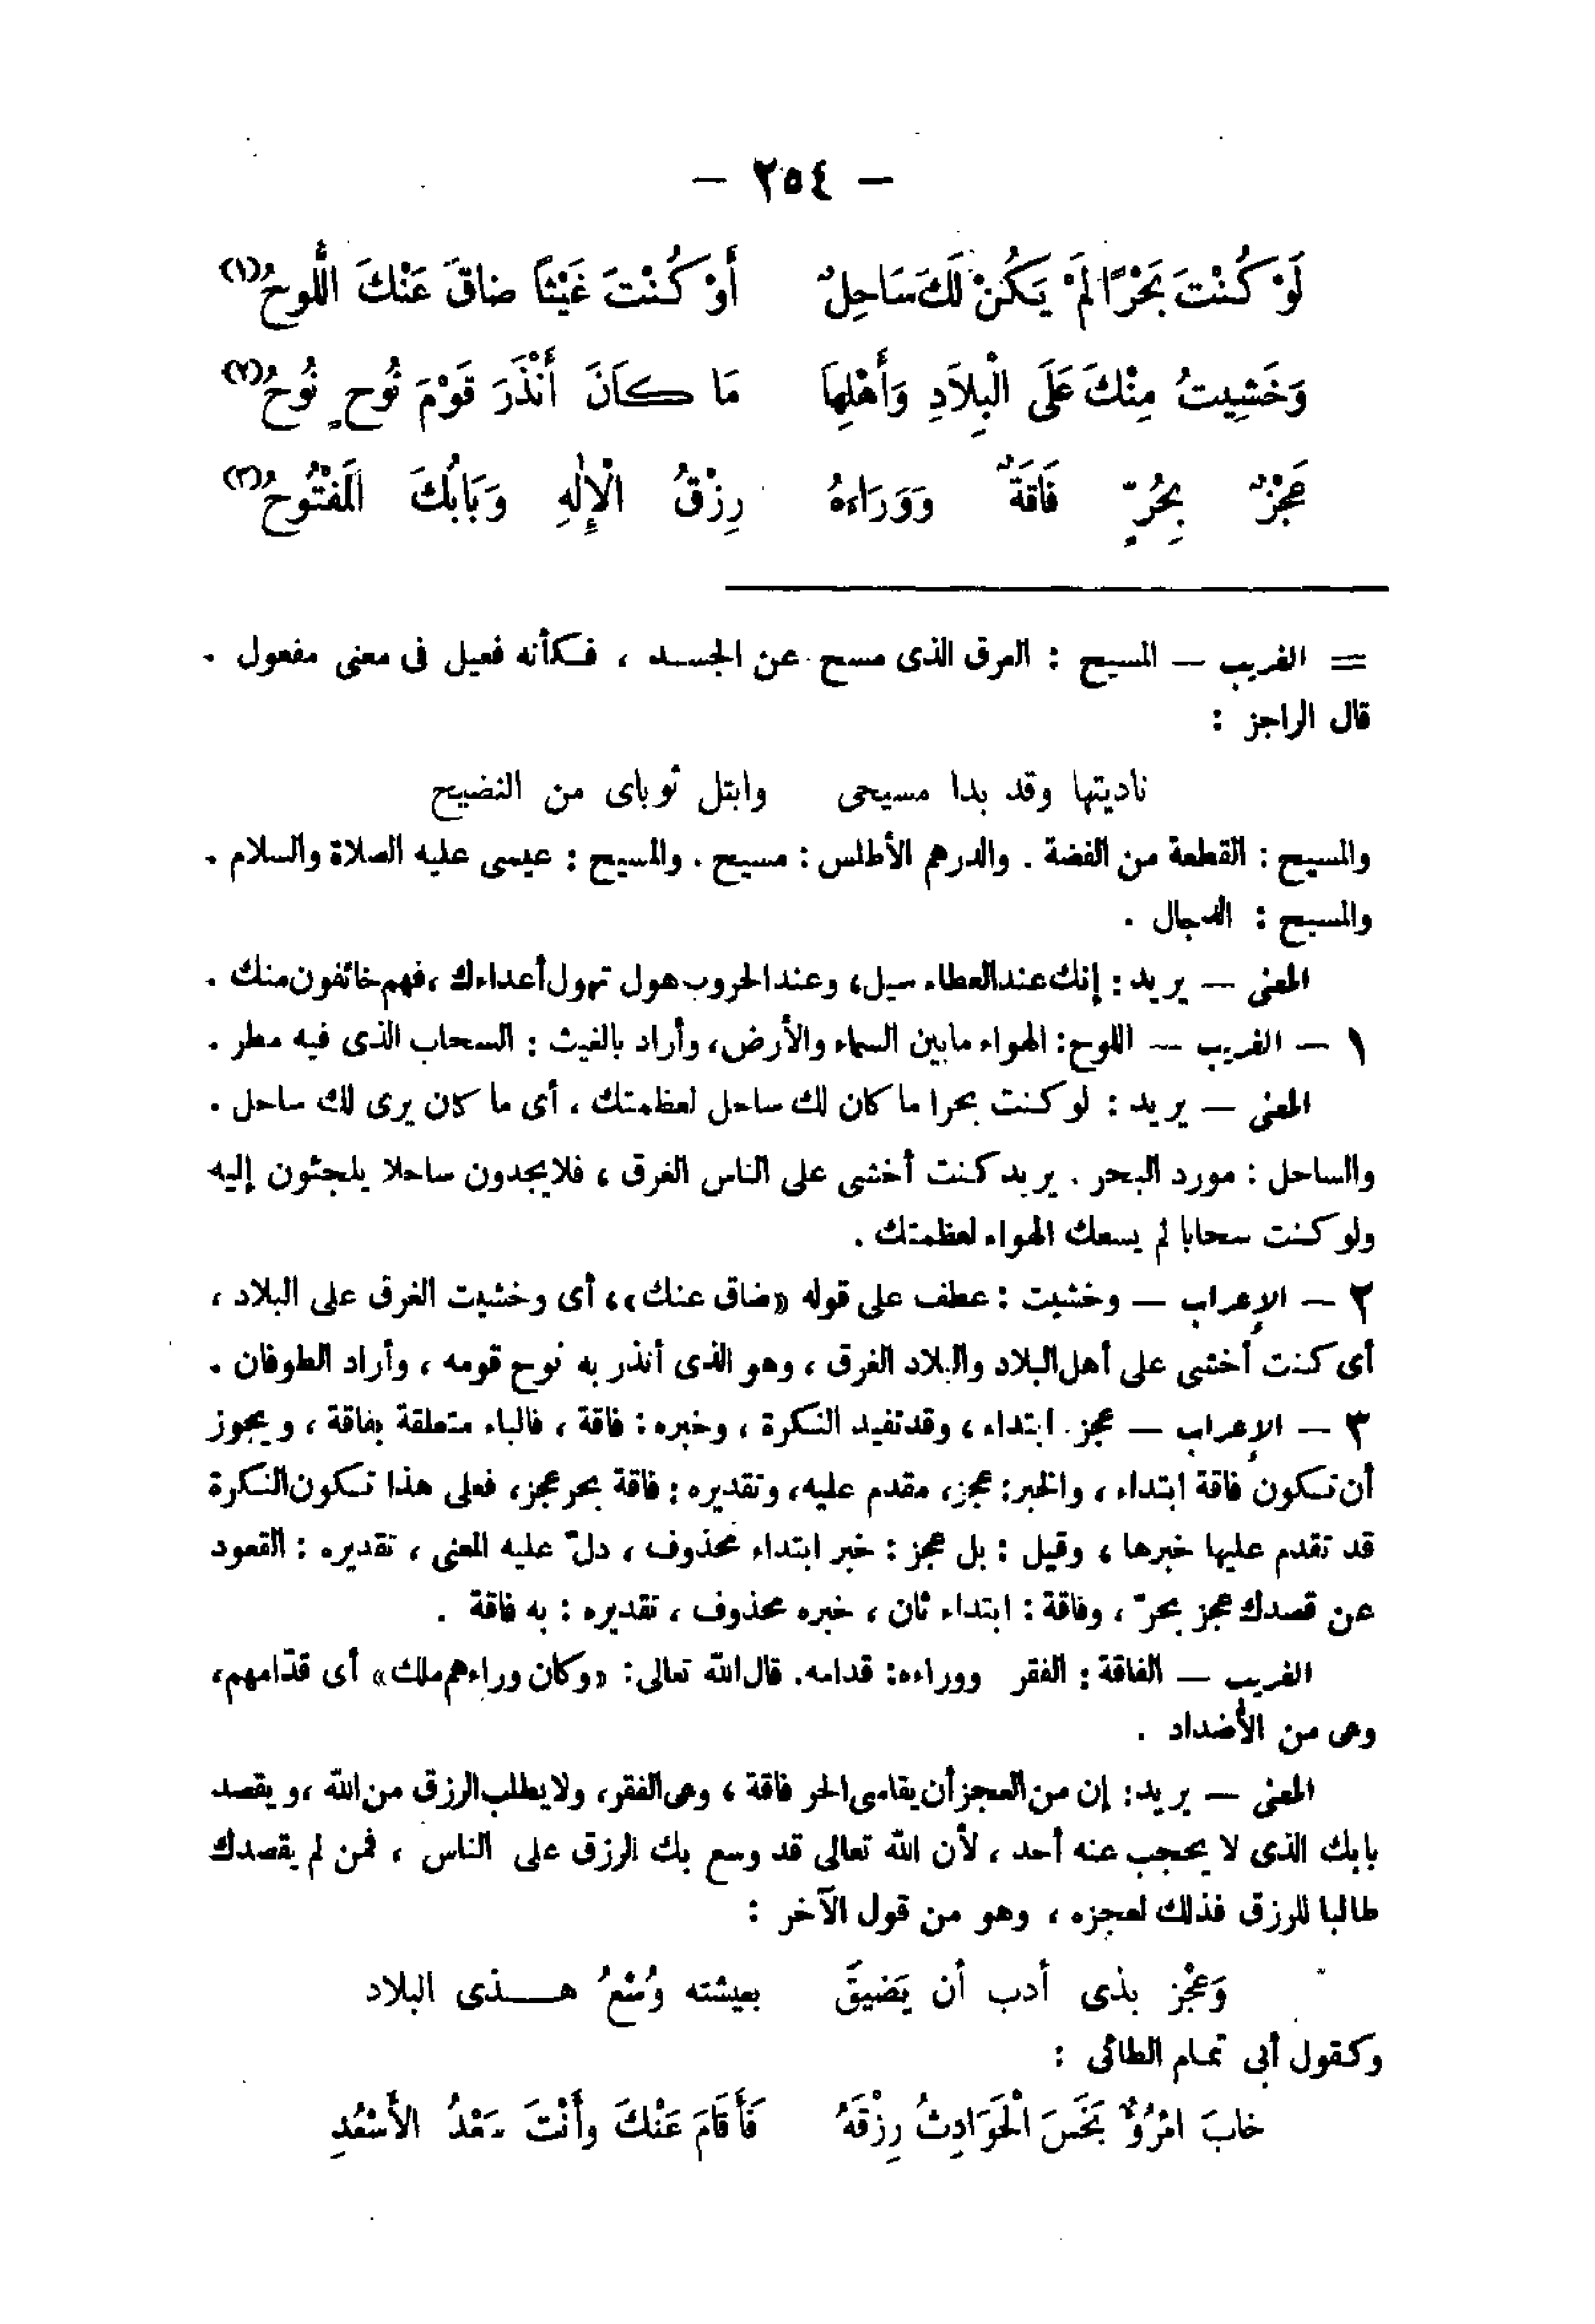 — ٢٥٤ —
لَوْ كُنْتَ بَحْرًا لَمْ يَكُنْ لَكَ سَاحِلٌ أَوْ كُنْتَ غَيْثًا ضاقَ عَنْكَ اللُّوحُ(١)
وَخَشِيتُ مِنْكَ عَلَى الْبِلاَدِ وَأَهْلِهاَ مَا كاَنَ أَنْذَرَ قَوْمَ نُوحٍ نُوحُ(٢)
عَجْزٌ بِحُرٍّ فَاقَةٌ وَوَرَاءهُ رِزْقُ الْإِلٰهِ وَبَابُكَ الْمَفْتُوحُ(٣)
= الغريب — المسيح : العرق الذى مسح عن الجسد ، فكأنه فعيل فى معنى مفعول .
قال الراجز :
ناديتها وقد بدا مسيحى وابتل ثوباى من النضيح
والمسيح : القطعة من الفضة . والدرهم الأطلس : مسيح . والمسيح : عيسى عليه الصلاة والسلام .
والمسيح : الدجال .
المعنى — يريد : إنك عند العطاء سيل، وعند الحروب هول تهول أعداءك ، فهم خائفون منك .
١ — الغريب — اللوح : الهواء ما بين السماء والأرض، وأراد بالغيث : السحاب الذى فيه مطر .
المعنى — يريد : لو كنت بحرا ما كان لك ساحل لعظمتك ، أى ما كان يرى لك ساحل .
والساحل : مورد البحر . يريد كنت أخشى على الناس الغرق ، فلا يجدون ساحلا يلجئون إليه
ولو كنت سحابا لم يسعك الهواء لعظمتك .
٢ — الإعراب — وخشيت : عطف على قوله «ضاق عنك» ، أى وخشيت الغرق على البلاد ،
أى كنت أخشى على أهل البلاد والبلاد الغرق ، وهو الذى أنذر به نوح قومه ، وأراد الطوفان .
٣ — الإعراب — عجز . ابتداء ، وقد تفيد النكرة ، وخبره : فاقة ، فالباء متعلقة بفاقة ، ويجوز
أن تكون فاقة ابتداء ، والخبر : عجز، مقدم عليه، وتقديره : فاقة بحر عجز، فعلى هذا تكون النكرة
قد تقدم عليها خبرها ، وقيل : بل عجز : خبر ابتداء محذوف ، دلّ عليه المعنى ، تقديره : القعود
عن قصدك عجز بحرّ ، وفاقة : ابتداء ثان ، خبره محذوف ، تقديره : به فاقة .
الغريب — الفاقة : الفقر ووراءه : قدامه. قال الله تعالى : «وكان وراءهم ملك» أى قدّامهم،
وهى من الأضداد .
المعنى — يريد : إن من العجز أن يقاسى الحر فاقة ، وهى الفقر، ولا يطلب الرزق من الله ، ويقصد
بابك الذى لا يحجب عنه أحد ، لأن الله تعالى قد وسع بك الرزق على الناس ، فمن لم يقصدك
طالبا للرزق فذلك لعجزه ، وهو من قول الآخر :
وَعَجْز بذى أدب أن يَضيقَ بعيشته وُسْعُ هذى البلاد
وكقول أبى تمام الطائى :
خابَ امْرُؤٌ بَخَسَ الْحَوَادِثُ رِزْقَهُ فَأَقَامَ عَنْكَ وأَنْتَ سَعْدُ الأَسْعُدِ